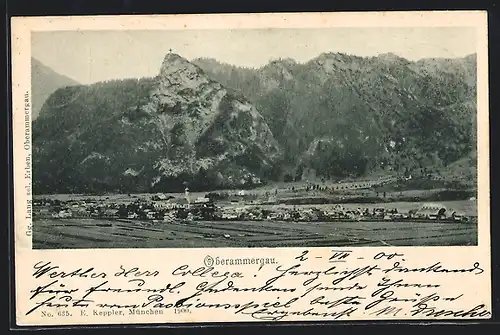 Gg. Lang sel. Erben, Oberammergau.
Oberammergau.
2 - VII - 00.
Werther Herr Collega! Herzlichst dankend
für freundl. Gedanken sende Ihnen
heute vom Passionsspiel beste Grüße
Ergebenst M.
No. 635. E. Keppler, München 1900.